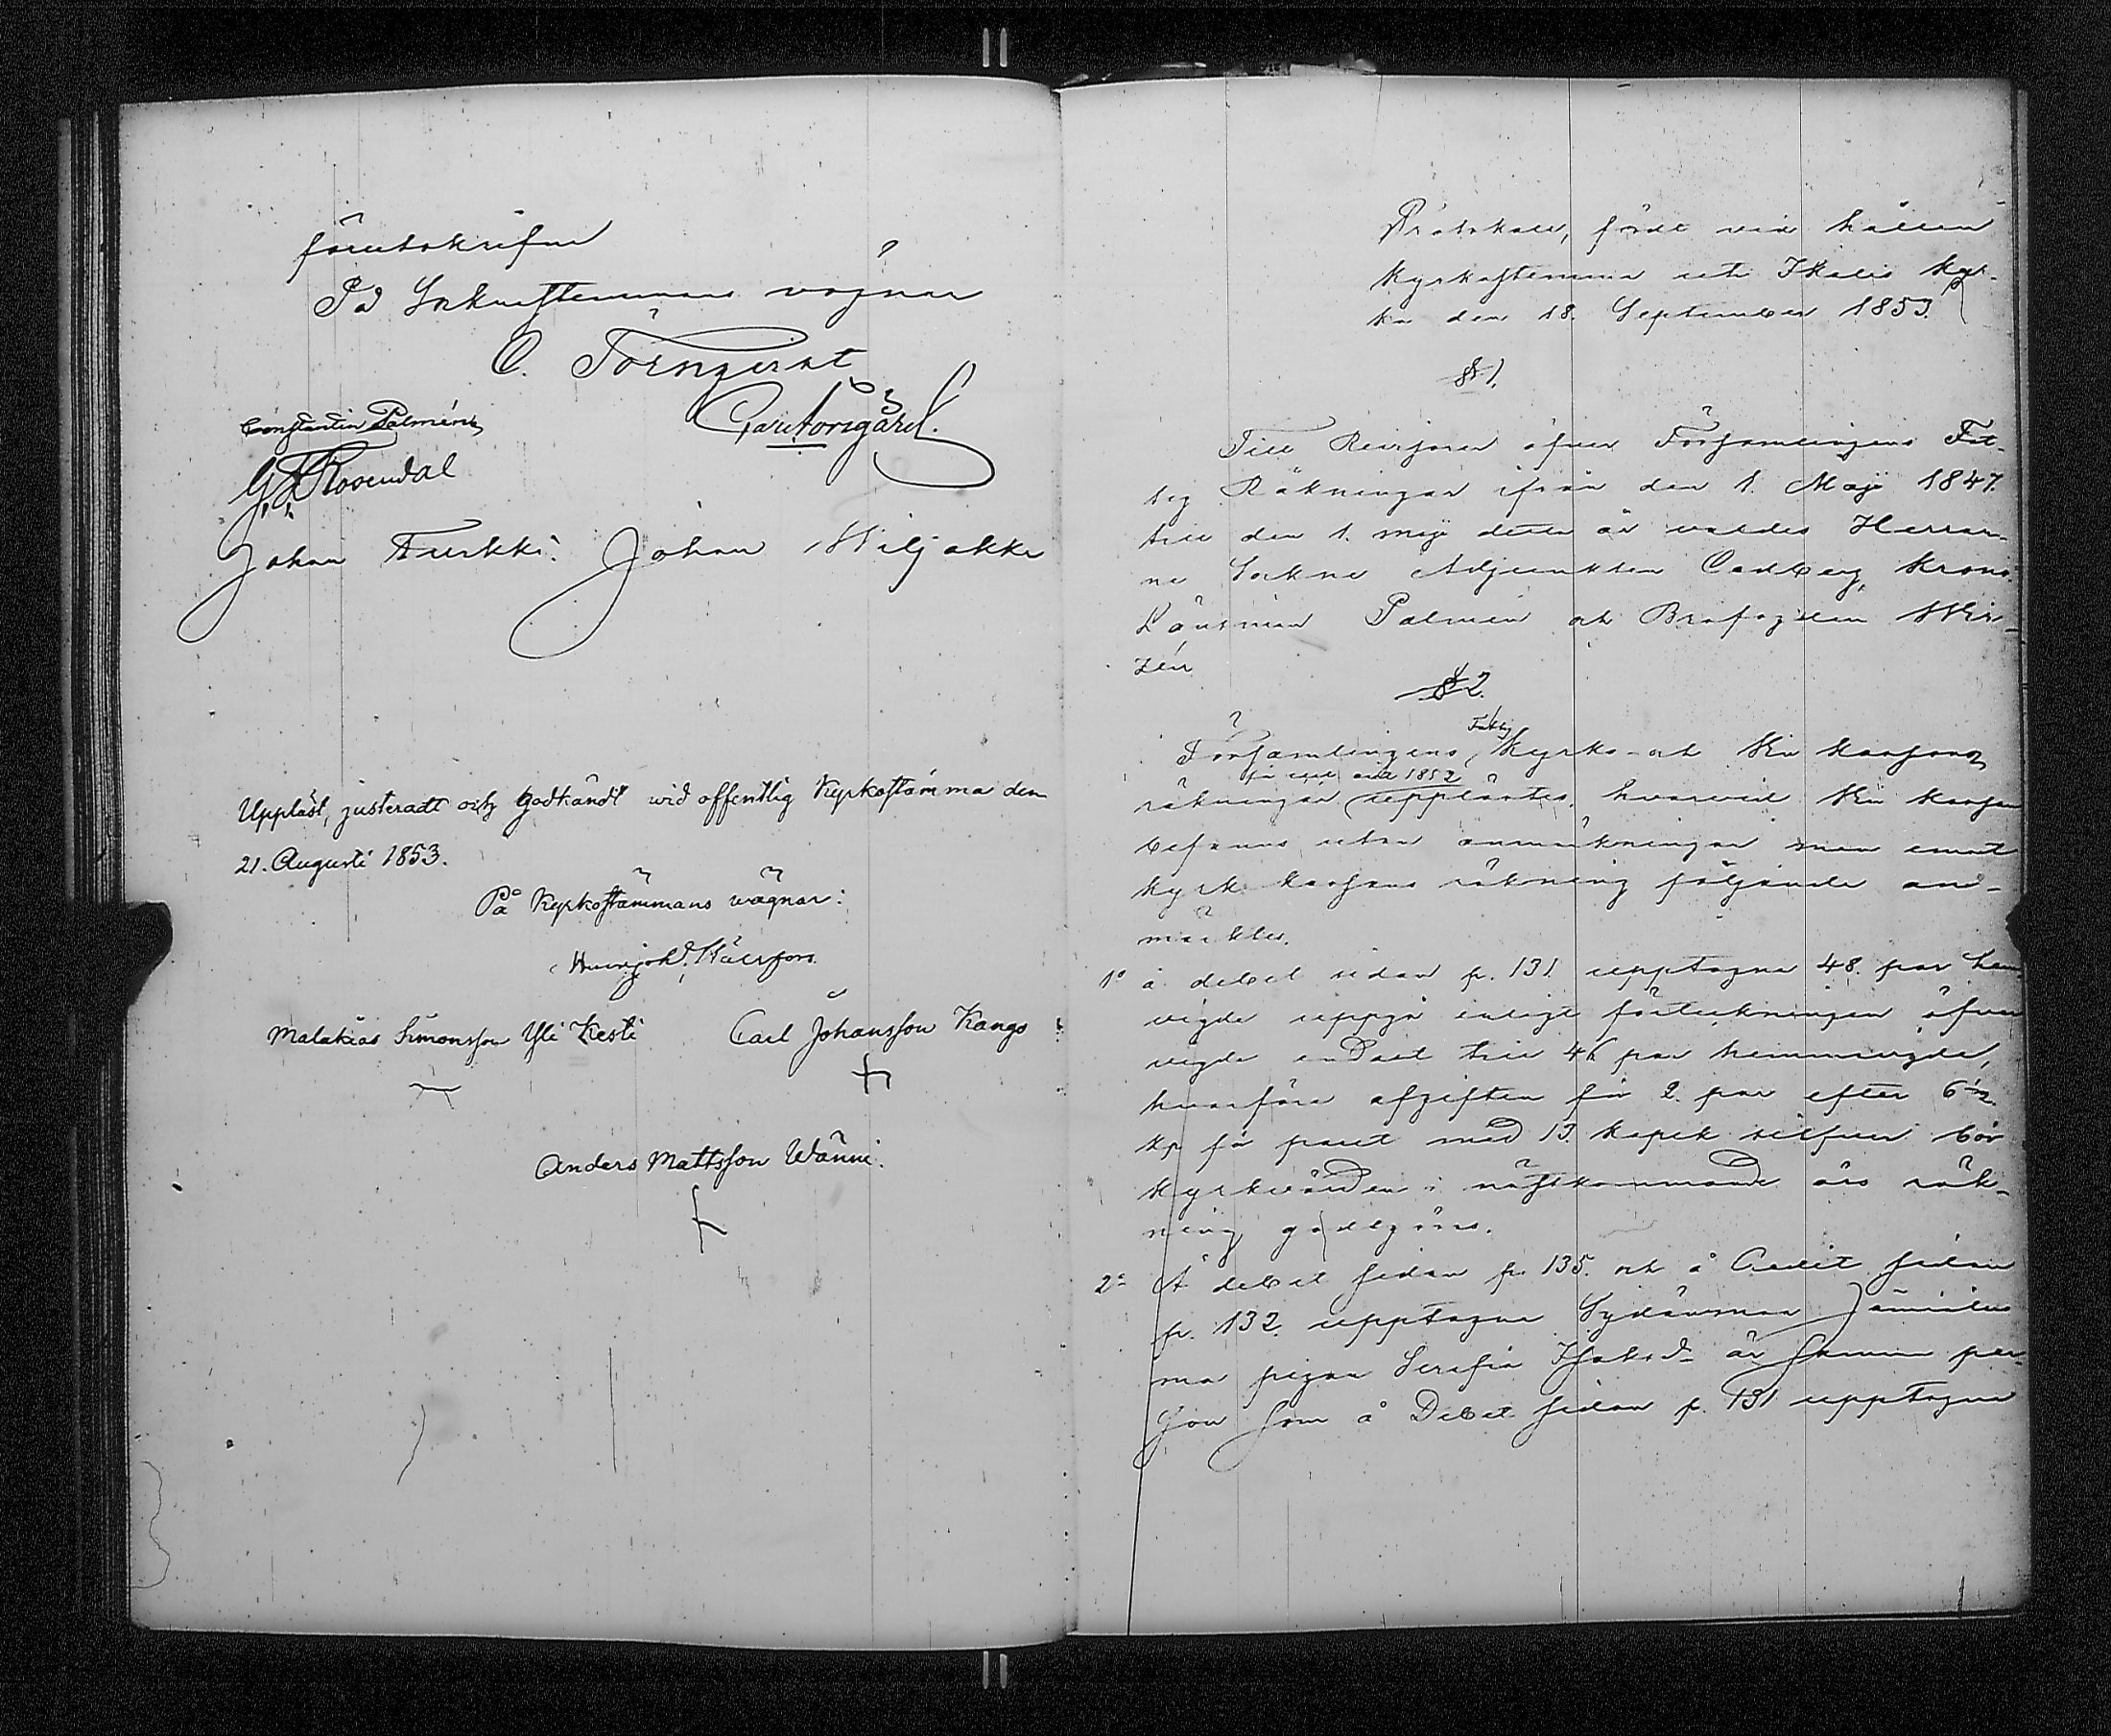 förutskrifne
På Sockenstemmans vägnar
C. Törnqvist
Constantin Palmén Gust Norsgård.
G. F. Rosendal
Johan Turkki. Johan Wiljakka
Uppläst, justeradt och godkändt wid offentlig Kyrkostämma den
21. Augusti 1853.
På Kyrkostämmans wägnar:
Malakias Simonsson Yli Kesti Carl Johansson Kango
Anders Mattsson Wänni.
Protokoll, fördt vid hållen
Kyrkostemma uti Ikalis Kyr-
ka den 18. September 1853.
§ 1.
Till Revisorer öfver Församlingens Fat-
tig Räkningar ifrån den 1. Maji 1847.
till den 1. Maji detta år valdes Herrar-
ne Sockne Adjunkten Carlberg, Krono
Länsman Palmén och Brofogden Wir-
zén
§ 2.
Församlingens Fattig Kyrko- och Vin Kassors
räkningar för året 1852 upplästes, hvarvid Vin Kassan
befanns utan anmärkningar men emot
Kyrko kassans räkning följande an-
märktes.
1° å debet sidan p. 131 upptagne 48. par hem
vigde uppgå enligt förteckningen öfver
vigde endast till 46 par hemmavigde,
hvarföre afgiften för 2. par efter 6 1/2
kp för paret med 13. kopek silfver bör
Kyrkvärden i nästkommande års räk-
ning godtgöras.
2° Å debet sidan p. 135. och å Credit sidan
p. 132. upptagne Sydänmaa
ma pigan Serafia Isaksd. är samma per-
son som å Debet sidan p. 131 upptagne